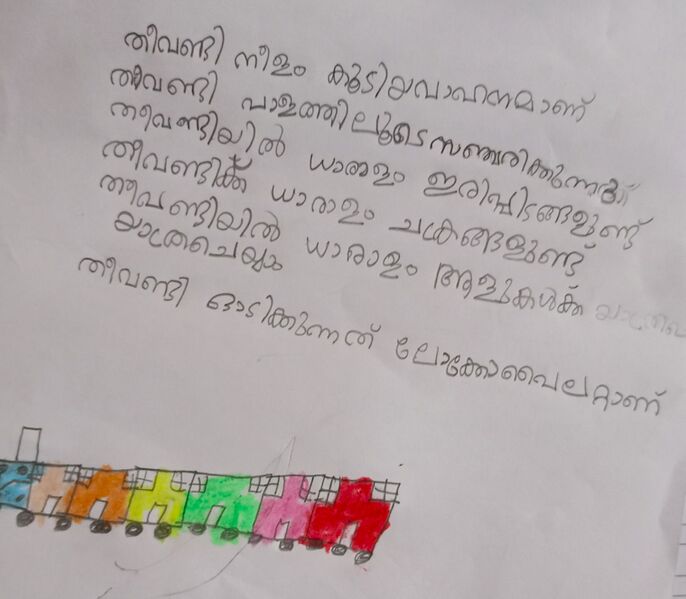 തീവണ്ടി നീളം കൂടിയവാഹനമാണ്
തീവണ്ടി പാളത്തിലൂടെസഞ്ചരിക്കുന്നത്
തീവണ്ടിയിൽ ധാരാളം ഇരിപ്പിടങ്ങളുണ്ട്
തീവണ്ടിക്ക് ധാരാളം ചക്രങ്ങളുണ്ട്
തീവണ്ടിയിൽ ധാരാളം ആളുകൾക്ക്
യാത്രചെയ്യാം
തീവണ്ടി ഓടിക്കുന്നത് ലോക്കോപൈലറ്റാണ്